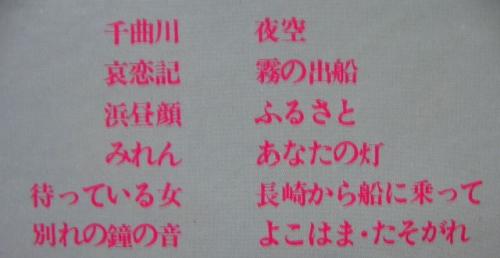 千曲川
哀恋記
浜昼顔
みれん
待っている女
別れの鐘の音
夜空
霧の出船
ふるさと
あなたの灯
長崎から船に乗って
よこはま・たそがれ